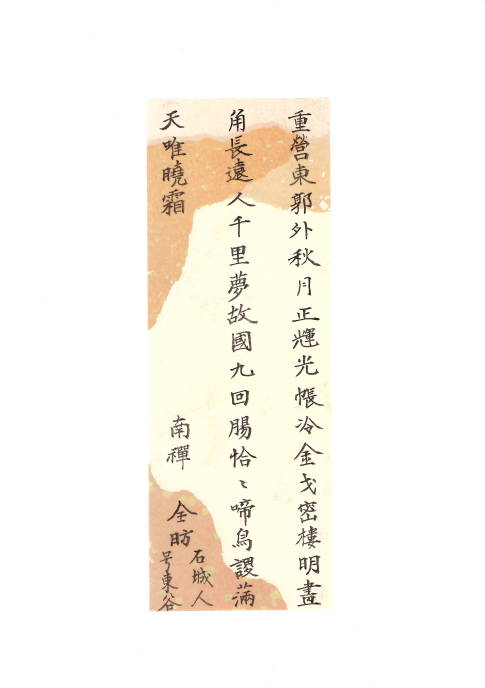 重營東郭外秋月正輝光帳冷金戈密樓明畵
角長遠人千里夢故國九回腸恰〻啼烏謖滿
天唯曉霜
南禪
全昉
石城人
号東谷